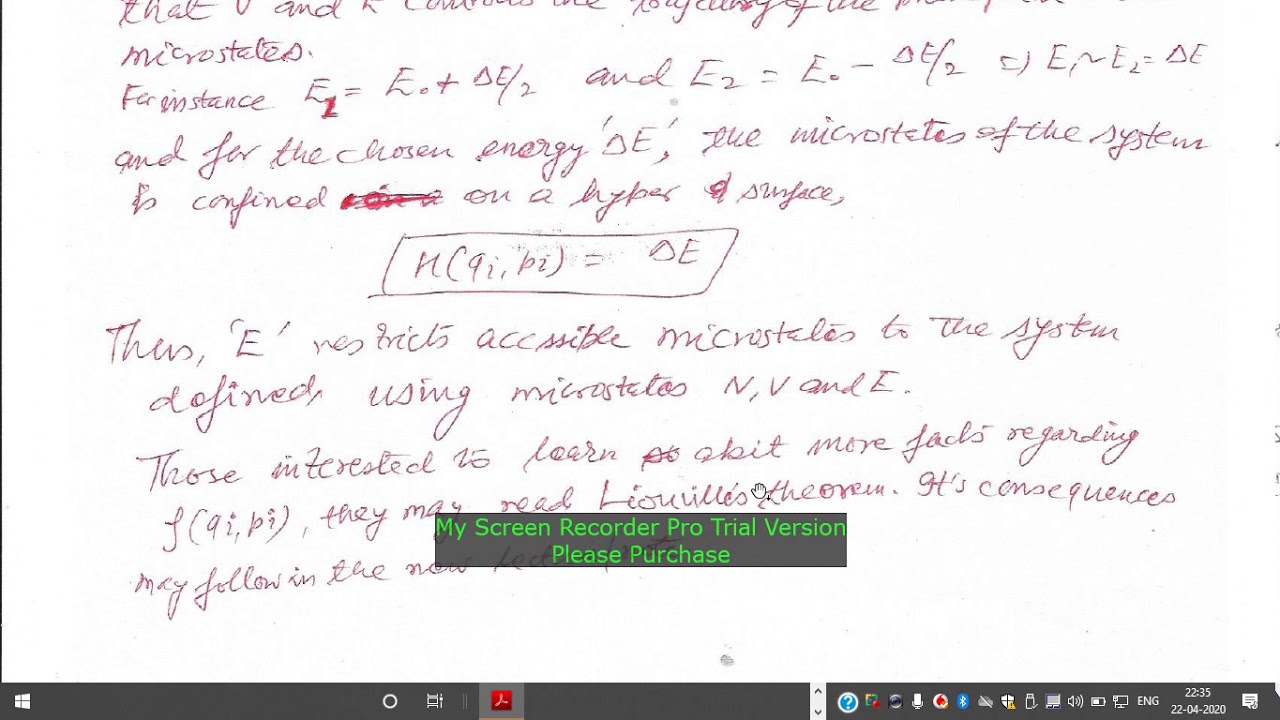 that V and E controls the of the
microstates.
For instance E1 = E0 + ΔE/2 and E2 = E0 − ΔE/2 ⇒ E1 ~ E2 = ΔE
and for the chosen energy 'ΔE', the microstates of the system
is confined on a hyper surface,
H(qi, pi) = ΔE
Thus, 'E' restricts accssible microstates to the system
defined, using microstates N, V and E.
Those interested to learn abit more facts regarding
ρ(qi, pi), they may read Liouville's theorem. It's consequences
My Screen Recorder Pro Trial Version
Please Purchase
may follow in the
ENG
22:35
22-04-2020